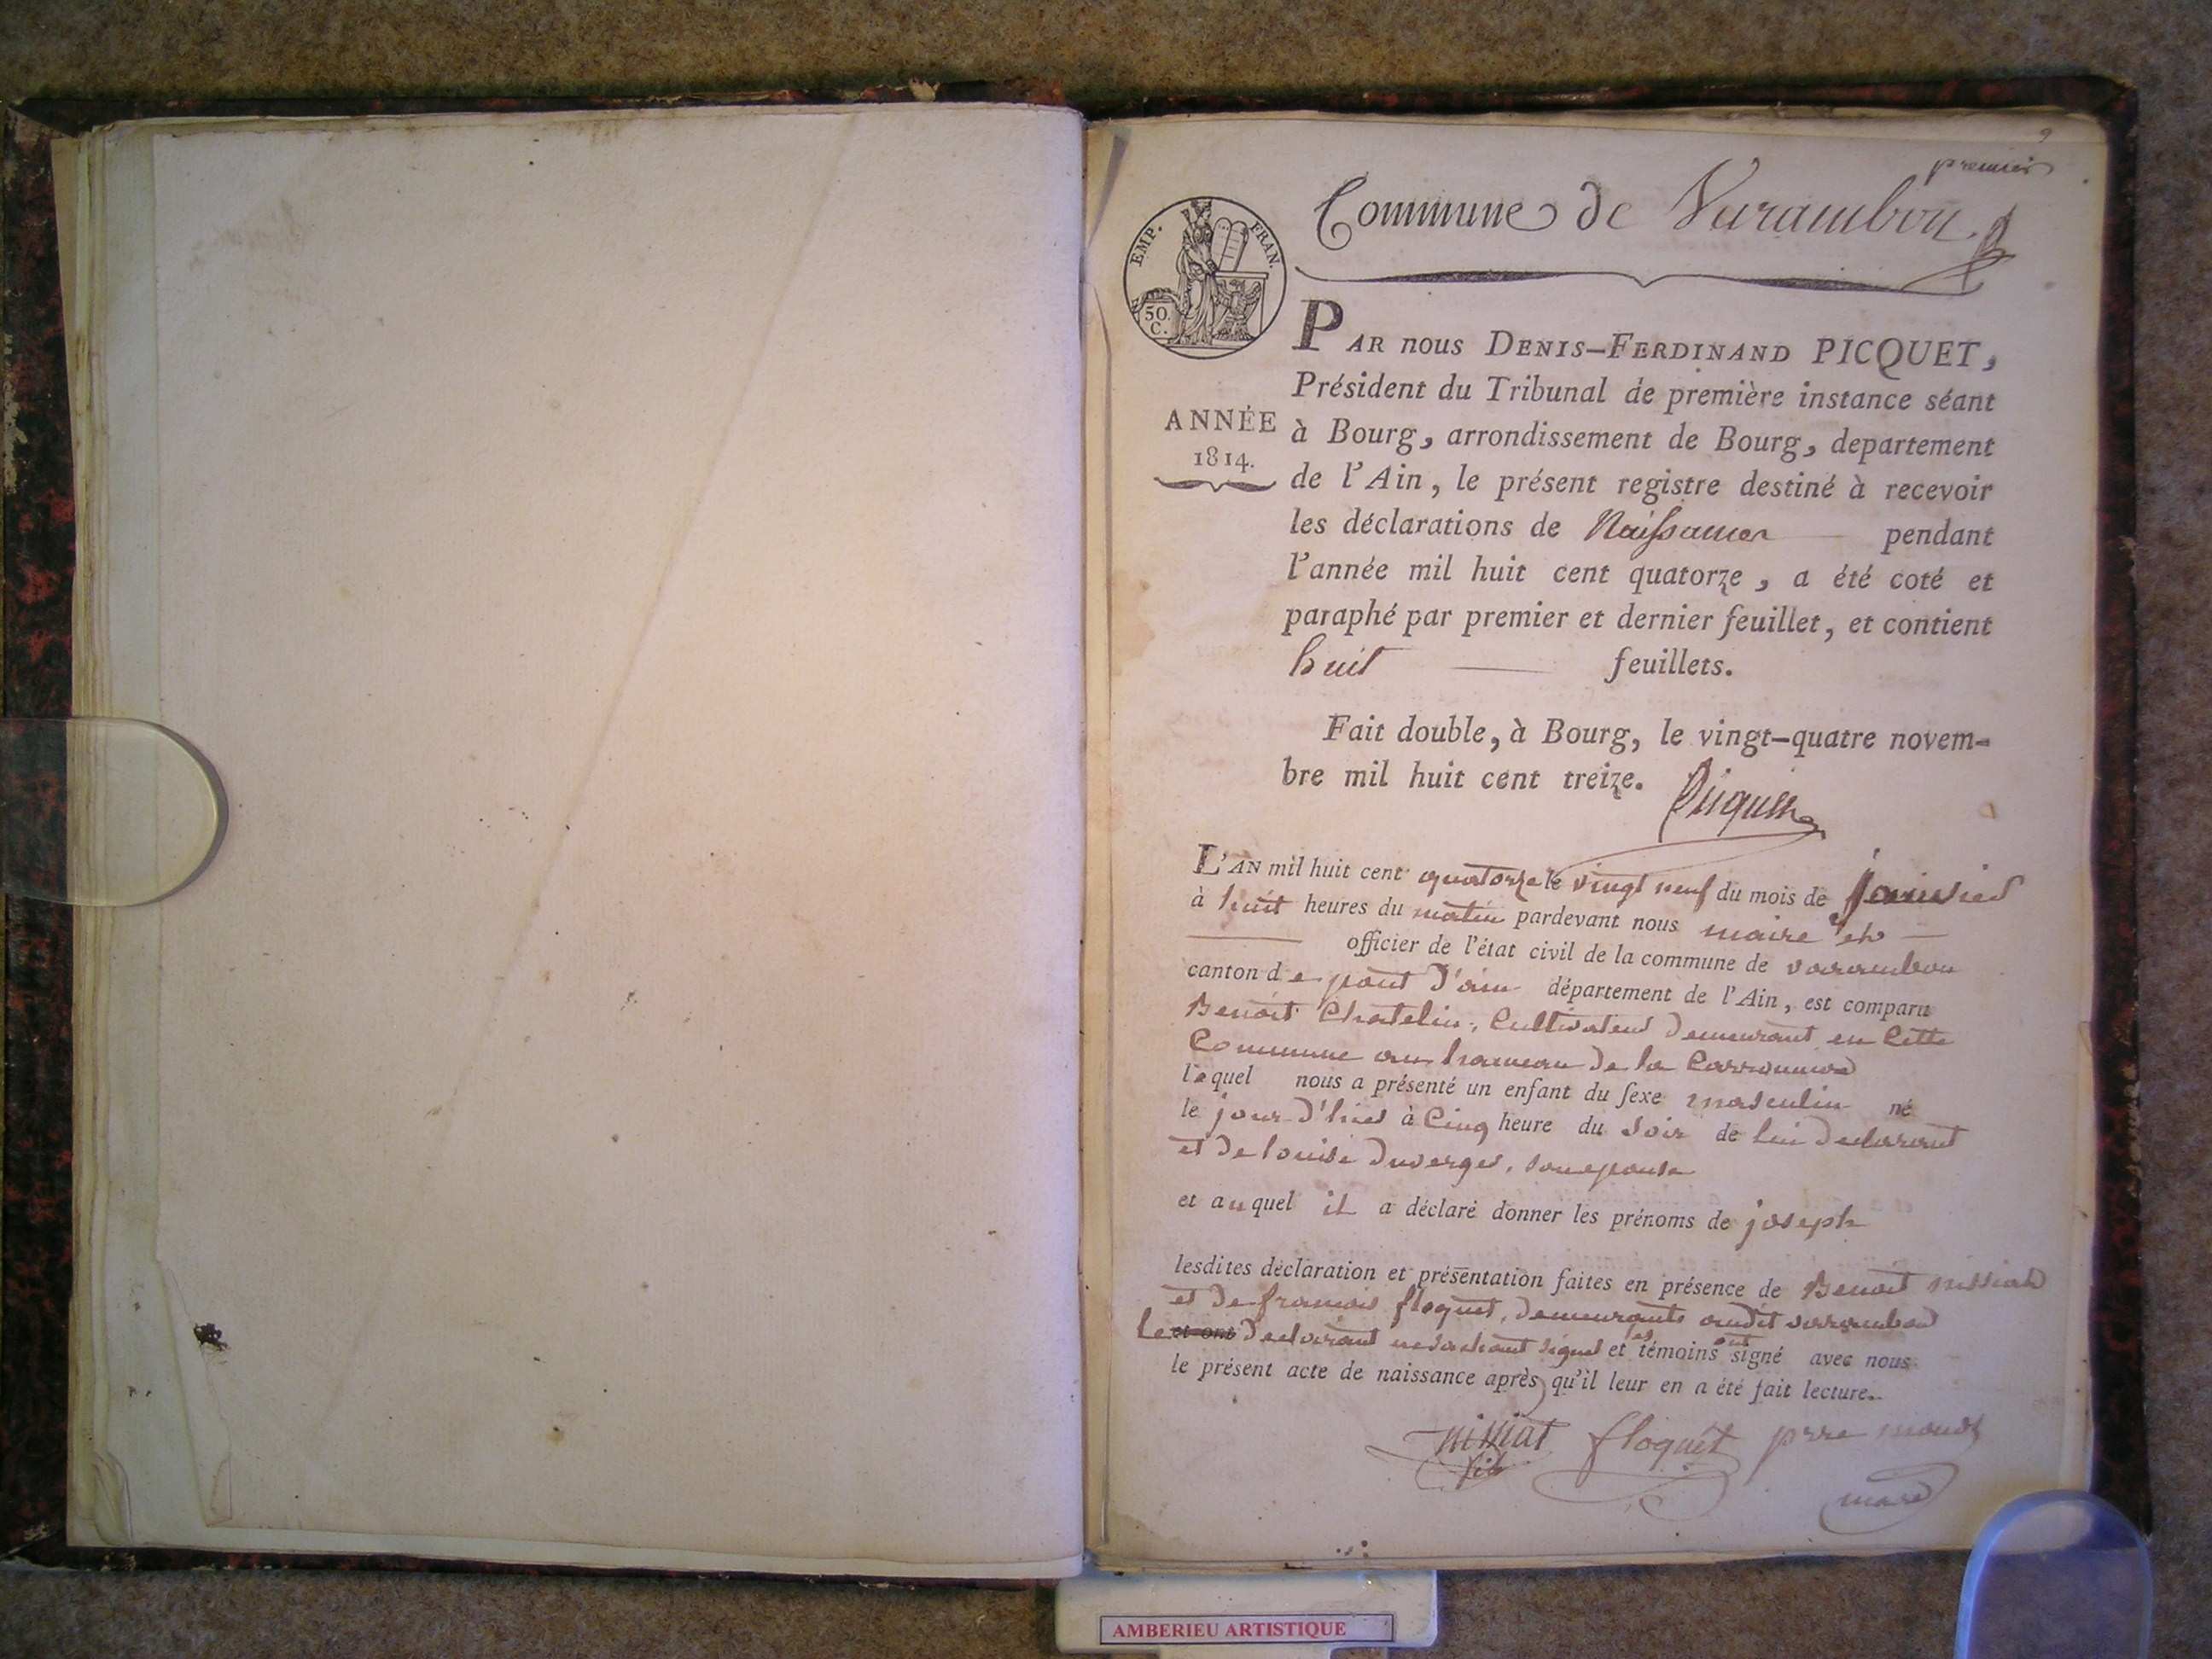 9
premier
Commune de Varambon.
EMP. FRAN.
50.
C.
PAR nous DENIS-FERDINAND PICQUET,
Président du Tribunal de première instance séant
ANNÉE
1814.
à Bourg, arrondissement de Bourg, departement
de l'Ain, le présent registre destiné à recevoir
les déclarations de Naissances pendant
l'année mil huit cent quatorze, a été coté et
paraphé par premier et dernier feuillet, et contient
huit feuillets.
Fait double, à Bourg, le vingt-quatre novem-
bre mil huit cent treize.
Picquet
L'AN mil huit cent quatorze le vingt neuf du mois de janvier
à huit heures du matin pardevant nous maire et
officier de l'état civil de la commune de varambon
canton de pont d'ain département de l'Ain, est comparu
Benoit Chatelin, Cultivateur demeurant en Cette
Commune au hameau de la Carronniere
lequel nous a présenté un enfant du sexe masculin né
le jour d'hier à Cinq heure du soir de lui declarant
et de louise duverger, son epouse
et auquel il a déclaré donner les prénoms de joseph
lesdites déclaration et présentation faites en présence de Benoit
et de francois floquet, demeurants audit varambon
Le declarant ne sachant signer et les témoins ont signé avec nous
le présent acte de naissance après qu'il leur en a été fait lecture.
fils floquet prre monod
maire
AMBERIEU ARTISTIQUE